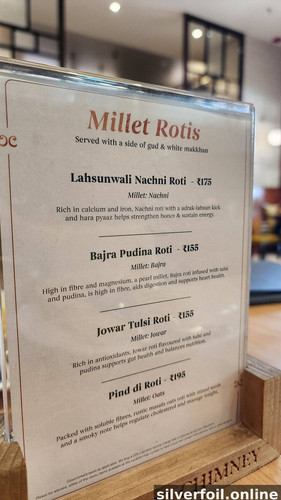 Millet Rotis
Served with a side of gud & white makkhan
Lahsunwali Nachni Roti - ₹175
Millet: Nachni
Rich in calcium and iron, Nachni roti with a adrak-lahsun kick
and hara pyaaz helps strengthen bones & sustain energy.
Bajra Pudina Roti - ₹155
Millet: Bajra
High in fibre and magnesium, a pearl millet, Bajra roti infused with tulsi
and pudina, is high in fibre, aids digestion and supports heart health.
Jowar Tulsi Roti - ₹155
Millet: Jowar
Rich in antioxidants, Jowar roti flavoured with tulsi and
pudina supports gut health and balances nutrition.
Pind di Roti - ₹195
Millet: Oats
Packed with soluble fibres, rustic masala oats roti with mixed seeds
and a smoky note helps regulate cholesterol and manage weight.
CHIMNEY
silverfoil.online